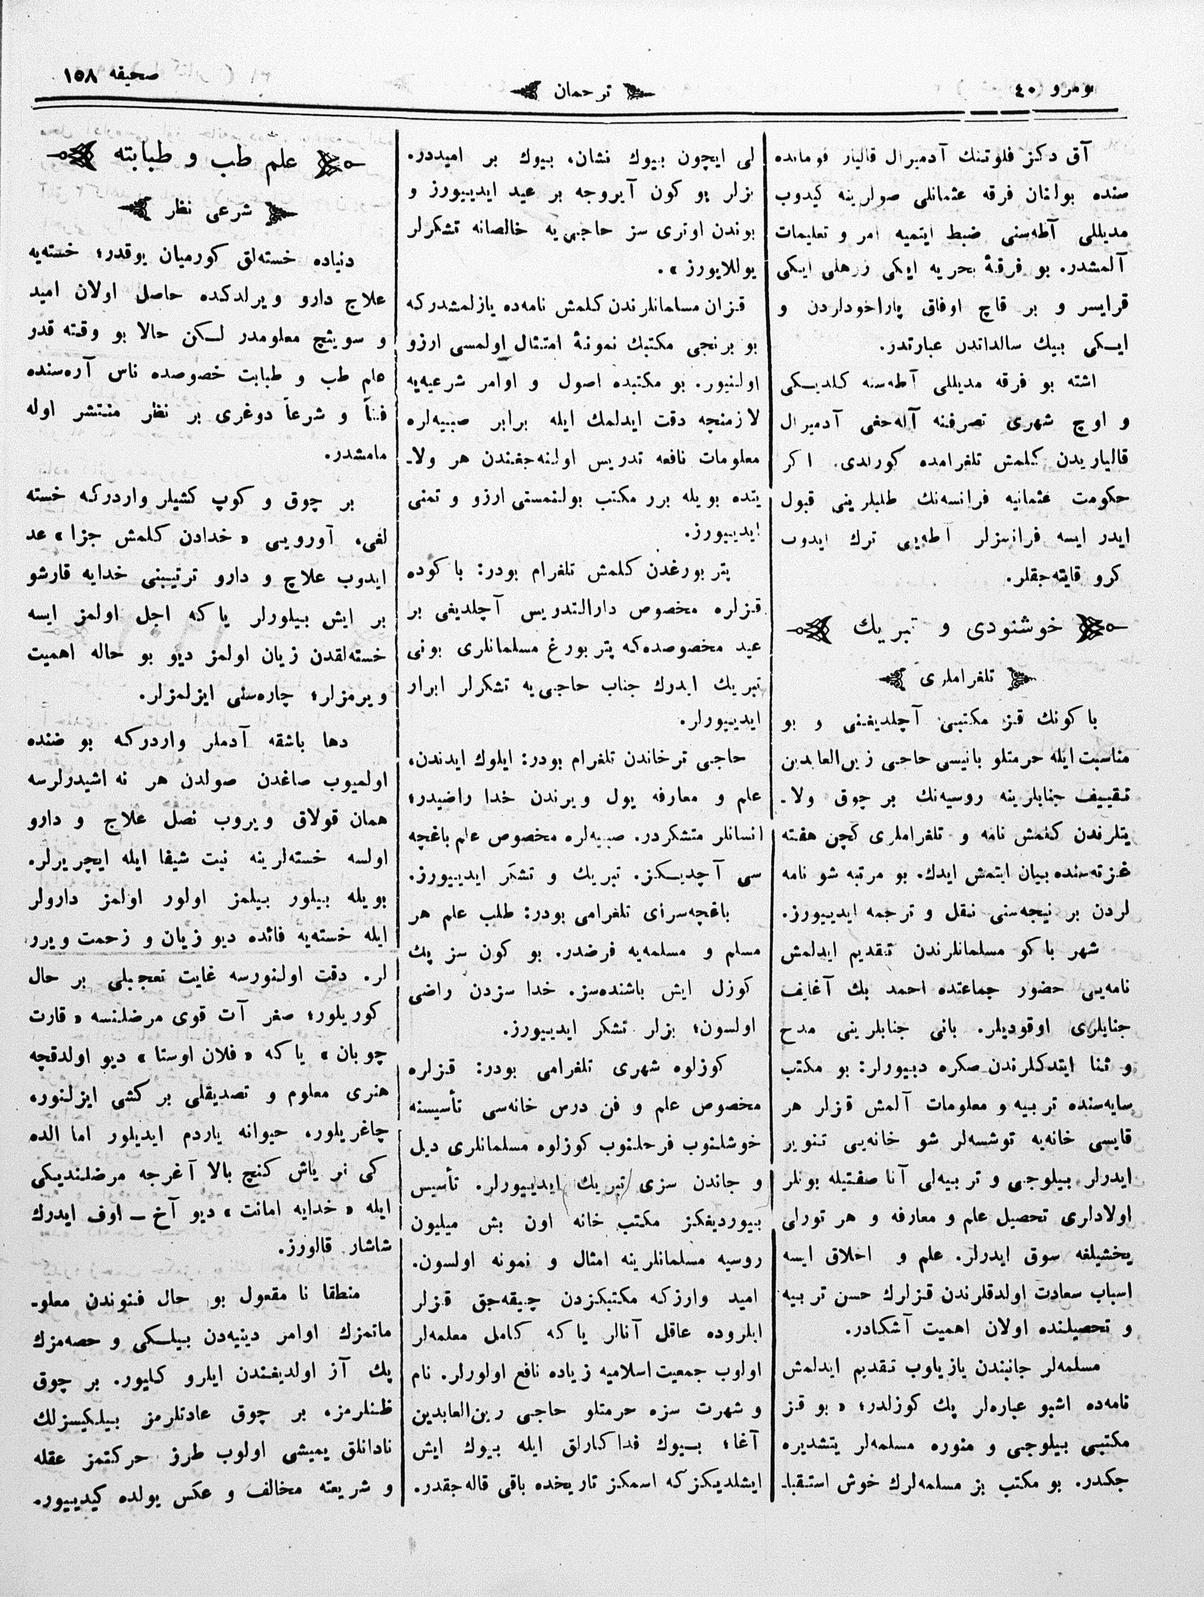 نومرو ٤٠
ترجمان
صحیفه ١٥٨
آق دكز فلوتنك آدمیرال قالیار قوماندە
صنده بولنان فرقه عثمانلی صولرینه كیدوب
مدیللی آطه‌سنی ضبط ایتمیه امر و تعلیمات
آلمشدر. بو فرقۀ بحریه ایكی زرهلی ایكی
قرایسر و بر قاچ اوفاق پاراخودلردن و
ایكی بیك سالداتدن عبارتدر.
اشته بو فرقه مدیللی آطه‌سنه كلدیكی
و اوچ شهری تصرفنه آله‌جغی آدمیرال
قالیاریدن كلمش تلغرامده كورلدی. اكر
حكومت عثمانیه فرانسه‌نك طلبلرینی قبول
ایدر ایسه فرانسزلر آطه‌یی ترك ایدوب
كرو قایته‌جقلر.
خوشنودی و تبریك
تلغراملری
باكونك قز مكتبی آچلدیغنی و بو
مناسبت ایله حرمتلو بانیسی حاجی زین‌العابدین
تقییف جنابلرینه روسیه‌نك بر چوق ولا-
یتلرندن كلمش نامه و تلغراملری كچن هفته
غزته‌سنده بیان ایتمش ایدك. بو مرتبه شو نامه
لردن بر نیجه‌سنی نقل و ترجمه ایدییورز.
شهر باكو مسلمانلرندن تقدیم ایدلمش
نامه‌یی حضور جماعتده احمد بك آغایف
جنابلری اوقودیلر. بانی جنابلرینی مدح
و ثنا ایتدكلرندن صكره دییورلر: بو مكتب
سایه‌سنده تربیه و معلومات آلمش قزلر هر
قایسی خانه‌یه توشسه‌لر شو خانه‌یی تنویر
ایدرلر بیلوجی و تربیه‌لی آنا صفتیله بونلر
اولادلری تحصیل علم و معارفه و هر تورلی
یخشیلغه سوق ایدرلر. علم و اخلاق ایسه
اسباب سعادت اولدقلرندن قزلرك حسن تربیه
و تحصیلنده اولان اهمیت آشكادر.
مسلمه‌لر جانبندن یازیاوب تقدیم ایدلمش
نامه‌ده اشبو عباره‌لر پك كوزلدر؛ «بو قز
مكتبی بیلوجی و منوره مسلمه‌لر یتشدیره
جكدر. بو مكتب بز مسلمه‌لرك خوش استقبا-
لی ایچون بیوك نشان، بیوك بر امیددر.
بزلر بو كون آیروجه بر عید ایدییورز و
بوندن اوتری سز حاجی‌یه خالصانه تشكرلر
یوللایورز».
قزان مسلمانلرندن كلمش نامه‌ده یازلمشدركه
بو برنجی مكتبك نمونۀ امتثال اولمسی ارزو
اولنیور. بو مكتبده اصول و اوامر شرعیه‌یه
لازمنچه دقت ایدلمك ایله برابر صبیه‌لره
معلومات نافعه تدریس اولنه‌جغندن هر ولا-
یتده بویله برر مكتب بولنمستی ارزو و تمنی
ایدییورز.
پتربورغدن كلمش تلغرام بودر: باكوده
قزلره مخصوص دارالتدریس آچلدیغی بر
عید مخصوصده‌كه پتربورغ مسلمانلری بونی
تبریك ایدرك جناب حاجی‌یه تشكرلر ابرار
ایدییورلر.
حاجی ترخاندن تلغرام بودر: ایلوك ایدندن،
علم و معارفه یول ویرندن خدا راضیدر؛
انسانلر متشكردر. صبیه‌لره مخصوص علم باغچه
سی آچدیكز. تبریك و تشكر ایدییورز.
باغچه‌سرای تلغرامی بودر: طلب علم هر
مسلم و مسلمه‌یه فرضدر. بو كون سز پك
كوزل ایش باشنده‌سز. خدا سزدن راضی
اولسون؛ بزلر تشكر ایدییورز.
كوزلوه شهری تلغرامی بودر: قزلره
مخصوص علم و فن درس خانه‌سی تأسیسنه
خوشلنوب فرحلنوب كوزلوه مسلمانلری دیل
و جاندن سزی تبریك ایدییورلر. تأسیس
بیوردیغكز مكتب خانه اون بش میلیون
روسیه مسلمانلرینه امثال و نمونه اولسون.
امید وارزكه مكتبكزدن چیقه‌جق قزلر
ایلروده عاقل آنالر یاكه كامل معلمه‌لر
اولوب جمعیت اسلامیه زیاده نافع اولورلر. نام
و شهرت سزه حرمتلو حاجی زین‌العابدین
آغا؛ بیوك فداكارلق ایله بیوك ایش
ایشلدیكزكه اسمكز تاریخده باقی قاله‌جقدر.
علم طب و طبابته
شرعی نظر
دنیاده خسته‌لق كورمیان یوقدر؛ خسته‌یه
علاج دارو ویرلدكده حاصل اولان امید
و سوینچ معلومدر لكن حالا بو وقته قدر
علم طب و طبابت خصوصده ناس آره‌سنده
فناً و شرعاً دوغری بر نظر منتشر اوله
مامشدر.
بر چوق و كوپ كشیلر واردركه خسته
لغی، آورویی «خدادن كلمش جزا» عد
ایدوب علاج و دارو ترتیبنی خدایه قارشو
بر ایش بیلورلر یاكه اجل اولمز ایسه
خسته‌لقدن زیان اولمز دیو بو حاله اهمیت
ویرمزلر؛ چاره‌سنی ایزلمزلر.
دها باشقه آدملر واردركه بو ضنده
اولمیوب صاغدن صولدن هر نه اشیدرلرسه
همان قولاق ویروب نصل علاج و دارو
اولسه خسته‌لرینه نیت شیفا ایله ایچریرلر.
بویله بیلور بیلمز اولور اولمز دارولر
ایله خسته‌یه فائده دیو زیان و زحمت ویرر
لر. دقت اولنورسه غایت تعجبلی بر حال
كوریلور؛ صغر آت قوی مرضلنسه «قارت
چوبان» یاكه «فلان اوستا» دیو اولدقچه
هنری معلوم و تصدیقلی بر كشی ایزلنوره
چاغریلور، حیوانه یاردم ایدیلور اما الده
كی نر یاش كنچ بالا آغرجه مرضلندیكی
ایله «خدایه امانت» دیو آخ – اوف ایدرك
شاشار قالورز.
منطقا نا مقعول بو حال فنوندن معلو-
ماتمزك اوامر دینیه‌دن بیلكی و حصه‌مزك
پك آز اولدیغندن ایلرو كلیور. بر چوق
ظنلرمز، بر چوق عادتلرمز بیلكیسزلك
نادانلق یمیشی اولوب طرز حركتمز عقله
و شریعته مخالف و عكس یولده كیدییور.